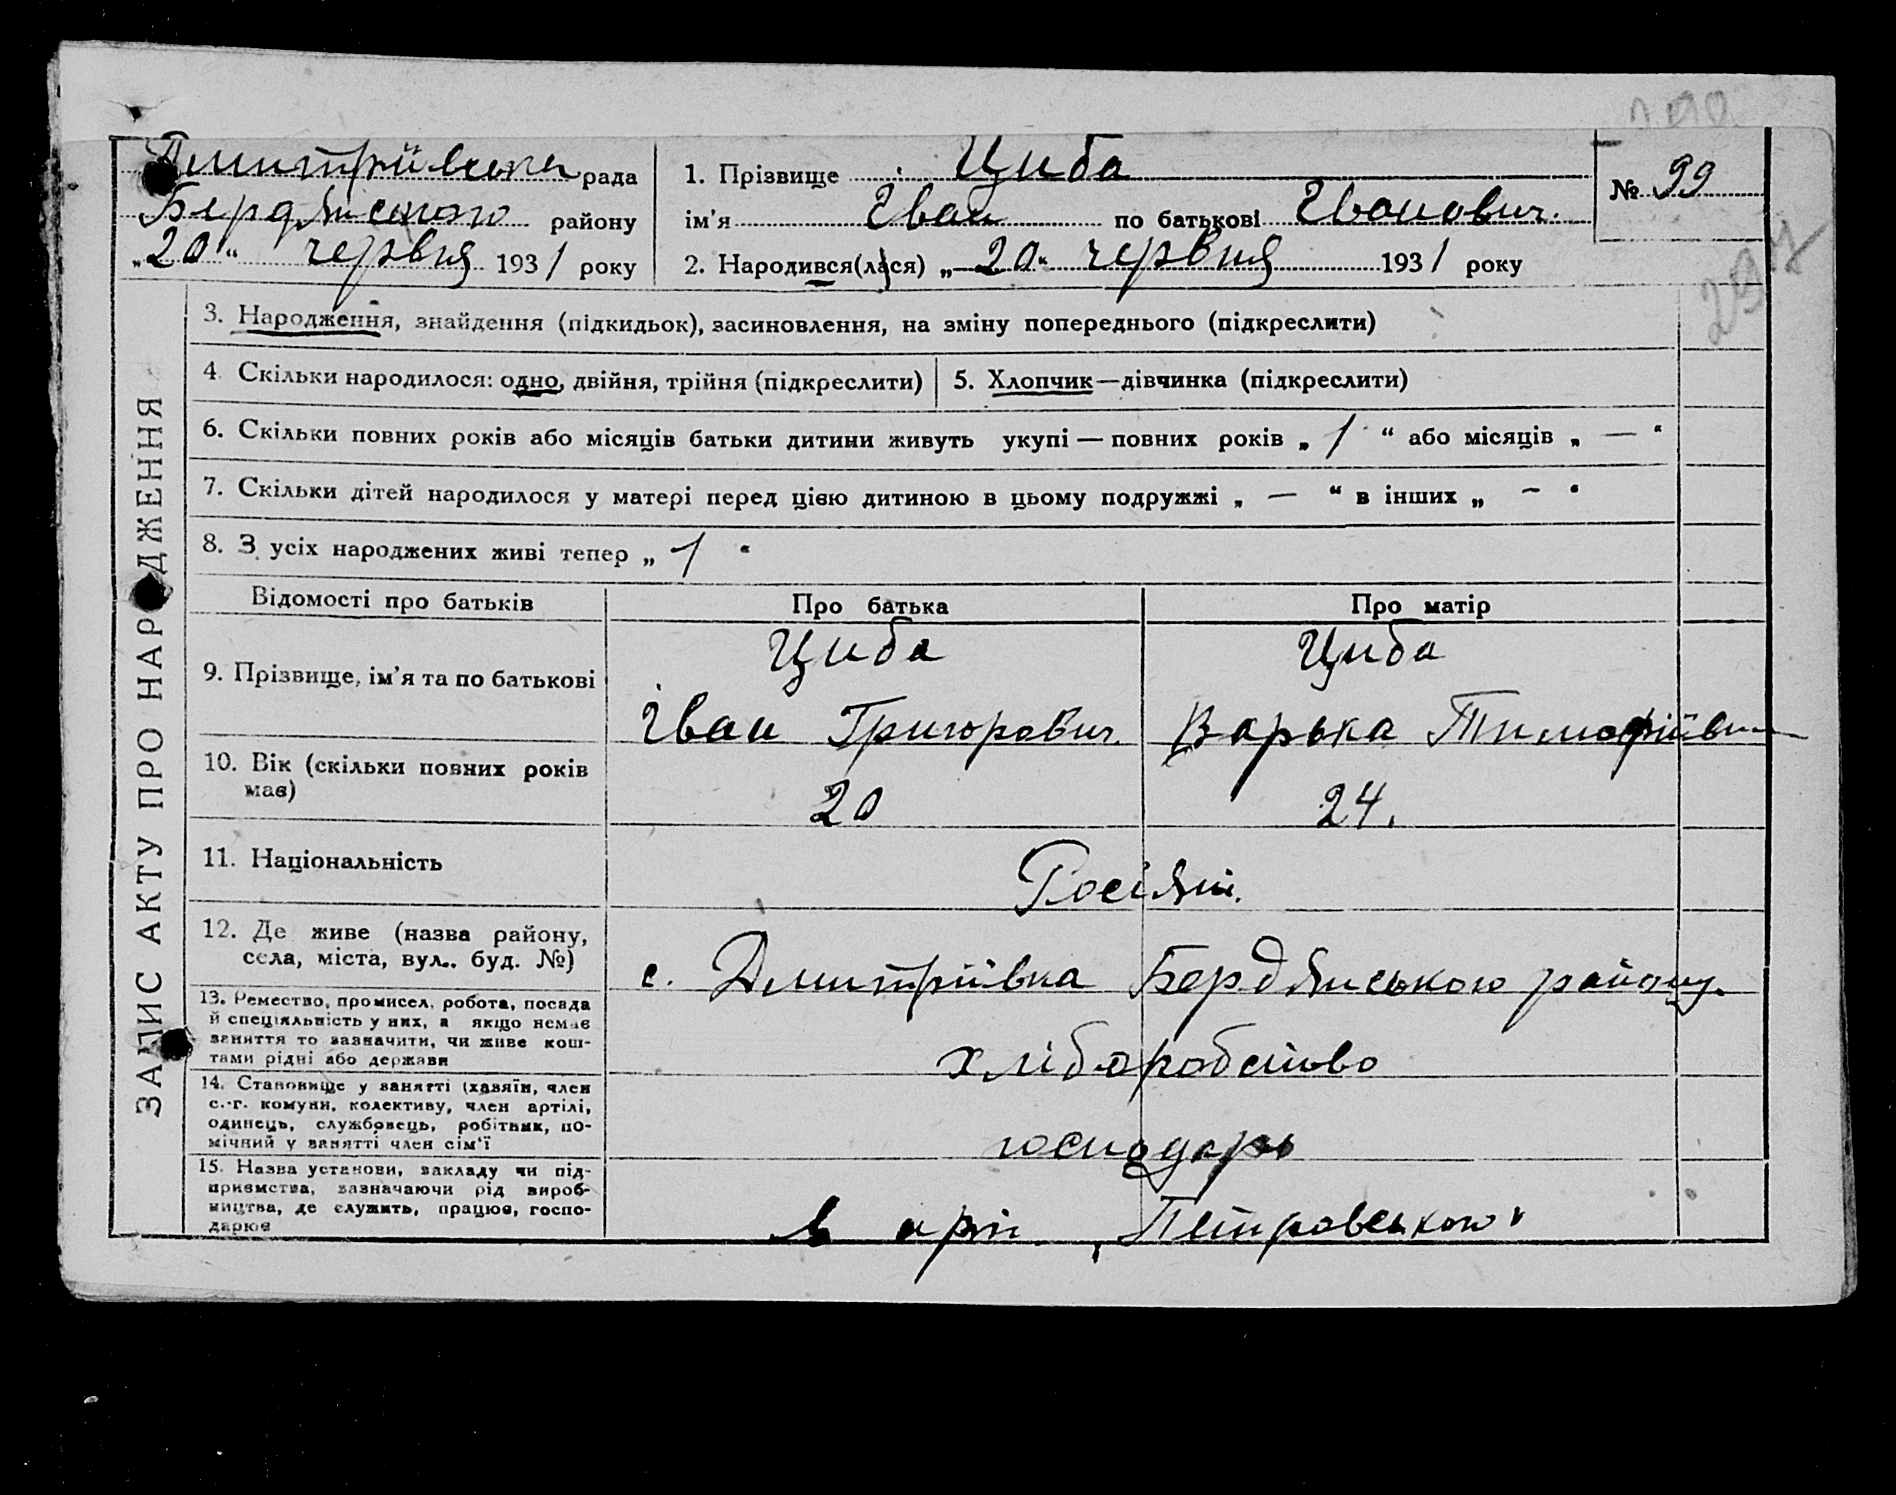 Дмитріївська рада
Бердянського району
„20“ червня 1931 року
1. Прізвище Циба
ім'я Іван по батькові Іванович.
2. Народився(лася) „20“ червня 1931 року
№ 99
297
ЗАПИС АКТУ ПРО НАРОДЖЕННЯ
3. Народження, знайдення (підкидьок), засиновлення, на зміну попереднього (підкреслити)
4. Скільки народилося: одно, двійня, трійня (підкреслити)
5. Хлопчик—дівчинка (підкреслити)
6. Скільки повних років або місяців батьки дитини живуть укупі — повних років „ 1 “ або місяців „ — “
7. Скільки дітей народилося у матері перед цією дитиною в цьому подружжі „ — “ в інших „ — “
8. З усіх народжених живі тепер „ 1 “
Відомості про батьків
Про батька
Про матір
9. Прізвище, ім'я та по батькові
Циба
Іван Григорович.
Циба
Варька Тимофіївн
10. Вік (скільки повних років
має)
20
24.
11. Національність
Росіяни.
12. Де живе (назва району,
села, міста, вул., буд. №)
с. Дмитріївка Бердянського району.
13. Ремество, промисел, робота, посада
й спеціяльність у них, а якщо немає
заняття то зазначити, чи живе кош-
тами рідні або держави
хліборобство
14. Становище у занятті (хазяїн, член
с.-г. комуни, колективу, член артілі,
одинець, службовець, робітник, по-
мічний у занятті член сім'ї
господарь
15. Назва установи, закладу чи під-
приємства, зазначаючи рід вироб-
ництва, де служить, працює, госпо-
дарює
в арт. „Петровського“